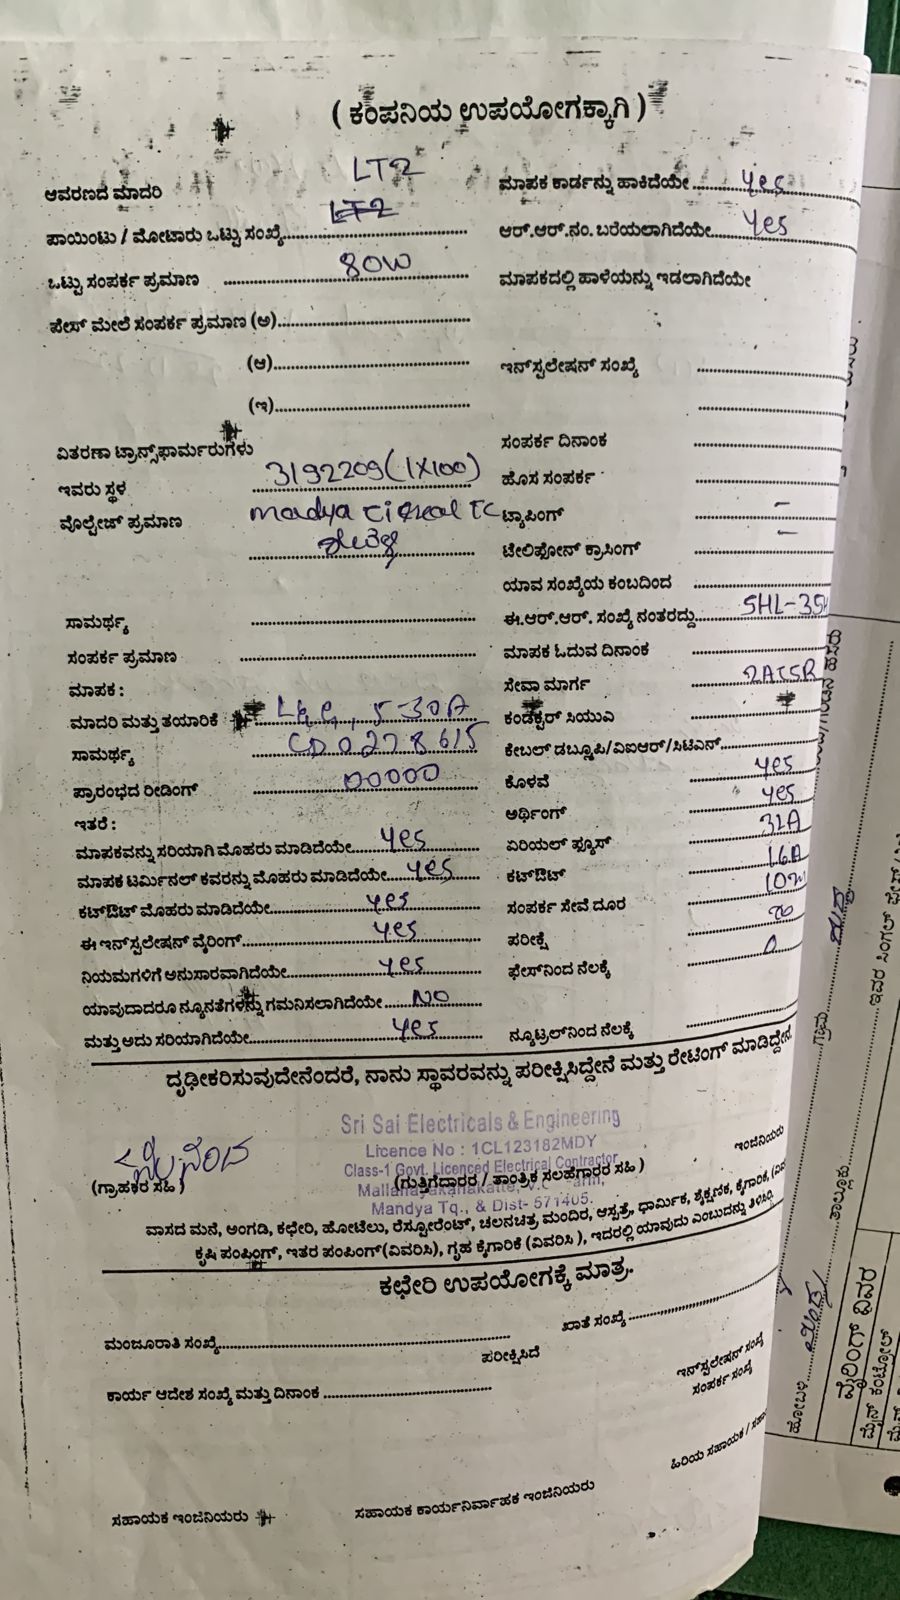 ( ಕಂಪನಿಯ ಉಪಯೋಗಕ್ಕಾಗಿ )
ಆವರಣದ ಮಾದರಿ LT2
ಪಾಯಿಂಟು / ಮೋಟಾರು ಒಟ್ಟು ಸಂಖ್ಯೆ LT2
ಒಟ್ಟು ಸಂಪರ್ಕ ಪ್ರಮಾಣ 80W
ಪೇಸ್ ಮೇಲೆ ಸಂಪರ್ಕ ಪ್ರಮಾಣ (ಅ)
(ಆ)
(ಇ)
ವಿತರಣಾ ಟ್ರಾನ್ಸ್‌ಫಾರ್ಮರುಗಳು
ಇವರು ಸ್ಥಳ 3192209 (1X100)
ವೊಲ್ಟೇಜ್ ಪ್ರಮಾಣ
ಸಾಮರ್ಥ್ಯ
ಸಂಪರ್ಕ ಪ್ರಮಾಣ
ಮಾಪಕ :
ಮಾದರಿ ಮತ್ತು ತಯಾರಿಕೆ 5-30A
ಸಾಮರ್ಥ್ಯ CD0278615
ಪ್ರಾರಂಭದ ರೀಡಿಂಗ್ 00000
ಇತರೆ :
ಮಾಪಕವನ್ನು ಸರಿಯಾಗಿ ಮೊಹರು ಮಾಡಿದೆಯೇ yes
ಮಾಪಕ ಟರ್ಮಿನಲ್ ಕವರನ್ನು ಮೊಹರು ಮಾಡಿದೆಯೇ yes
ಕಟ್‌ಔಟ್ ಮೊಹರು ಮಾಡಿದೆಯೇ yes
ಈ ಇನ್‌ಸ್ಪಲೇಷನ್ ವೈರಿಂಗ್ yes
ನಿಯಮಗಳಿಗೆ ಅನುಸಾರವಾಗಿದೆಯೇ yes
ಯಾವುದಾದರೂ ನ್ಯೂನತೆಗಳನ್ನು ಗಮನಿಸಲಾಗಿದೆಯೇ NO
ಮತ್ತು ಅದು ಸರಿಯಾಗಿದೆಯೇ yes
ಮಾಪಕ ಕಾರ್ಡನ್ನು ಹಾಕಿದೆಯೇ yes
ಆರ್.ಆರ್.ನಂ. ಬರೆಯಲಾಗಿದೆಯೇ yes
ಮಾಪಕದಲ್ಲಿ ಹಾಳೆಯನ್ನು ಇಡಲಾಗಿದೆಯೇ
ಇನ್‌ಸ್ಪಲೇಷನ್ ಸಂಖ್ಯೆ
ಸಂಪರ್ಕ ದಿನಾಂಕ
ಹೊಸ ಸಂಪರ್ಕ
ಟ್ಯಾಪಿಂಗ್ -
ಟೇಲಿಫೋನ್ ಕ್ರಾಸಿಂಗ್ -
ಯಾವ ಸಂಖ್ಯೆಯ ಕಂಬದಿಂದ
ಈ.ಆರ್.ಆರ್. ಸಂಖ್ಯೆ ನಂತರದ್ದು SHL-35
ಮಾಪಕ ಓದುವ ದಿನಾಂಕ
ಸೇವಾ ಮಾರ್ಗ
ಕಂಡಕ್ಟರ್ ಸಿಯುಎ
ಕೇಬಲ್ ಡಬ್ಲೂಪಿ/ವಿಐಆರ್/ಸಿಟಿಎನ್
ಕೊಳವೆ yes
ಅರ್ಥಿಂಗ್ yes
ಏರಿಯಲ್ ಫ್ಯೂಸ್ 32A
ಕಟ್‌ಔಟ್ 16A
ಸಂಪರ್ಕ ಸೇವೆ ದೂರ 10m
ಪರೀಕ್ಷೆ
ಫೇಸ್‌ನಿಂದ ನೆಲಕ್ಕೆ
ನ್ಯೂಟ್ರಲ್‌ನಿಂದ ನೆಲಕ್ಕೆ
ದೃಢೀಕರಿಸುವುದೇನೆಂದರೆ, ನಾನು ಸ್ಥಾವರವನ್ನು ಪರೀಕ್ಷಿಸಿದ್ದೇನೆ ಮತ್ತು ರೇಟಿಂಗ್ ಮಾಡಿದ್ದೇನೆ.
Sri Sai Electricals & Engineering
Licence No : 1CL123182MDY
Class-1 Govt. Licenced Electrical Contractor
Mandya Tq., & Dist- 571405.
(ಗ್ರಾಹಕರ ಸಹಿ )
(ಗುತ್ತಿಗೆದಾರರ / ತಾಂತ್ರಿಕ ಸಲಹೆಗಾರರ ಸಹಿ )
ಇಂಜಿನಿಯರು
ವಾಸದ ಮನೆ, ಅಂಗಡಿ, ಕಛೇರಿ, ಹೋಟೆಲು, ರೆಸ್ಟೋರೆಂಟ್, ಚಲನಚಿತ್ರ ಮಂದಿರ, ಆಸ್ಪತ್ರೆ, ಧಾರ್ಮಿಕ, ಶೈಕ್ಷಣಿಕ, ಕೈಗಾರಿಕೆ,
ಕೃಷಿ ಪಂಪಿಂಗ್, ಇತರ ಪಂಪಿಂಗ್(ವಿವರಿಸಿ), ಗೃಹ ಕೈಗಾರಿಕೆ (ವಿವರಿಸಿ ), ಇದರಲ್ಲಿ ಯಾವುದು ಎಂಬುದನ್ನು ತಿಳಿಸಿ
ಕಛೇರಿ ಉಪಯೋಗಕ್ಕೆ ಮಾತ್ರ.
ಮಂಜೂರಾತಿ ಸಂಖ್ಯೆ
ಖಾತೆ ಸಂಖ್ಯೆ
ಪರೀಕ್ಷಿಸಿದೆ
ಕಾರ್ಯ ಆದೇಶ ಸಂಖ್ಯೆ ಮತ್ತು ದಿನಾಂಕ
ಇನ್‌ಸ್ಪಲೇಷನ್ ಸಂಖ್ಯೆ
ಸಂಪರ್ಕ ಸಂಖ್ಯೆ
ಸಹಾಯಕ ಇಂಜಿನಿಯರು
ಸಹಾಯಕ ಕಾರ್ಯನಿರ್ವಾಹಕ ಇಂಜಿನಿಯರು
ಹಿರಿಯ ಸಹಾಯಕ /
ಗ್ರಾಮ
ತಾಲ್ಲೂಕು
ಹೋಬಳಿ
ವೈರಿಂಗ್ ವಿವರ
ಮೈನ್ ಕಂಟ್ರೋಲ್